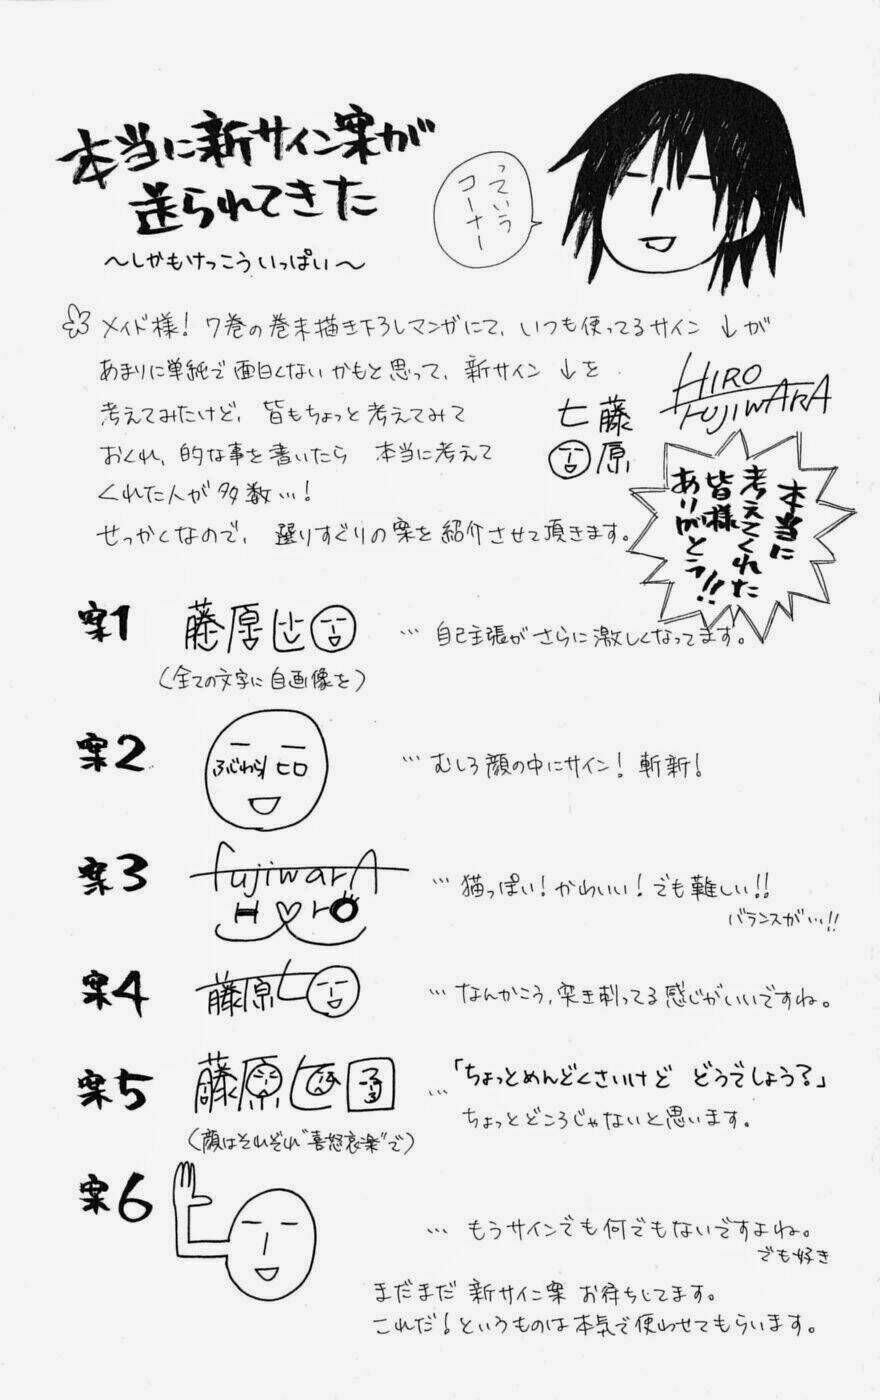 本当に新サイン案が
送られてきた
～しかもけっこういっぱい～
っていう
コーナー
メイド様！7巻の巻末描き下ろしマンガにて、いつも使ってるサイン ↓が
あまりに単純で面白くないかもと思って、新サイン ↓を
考えてみたけど、皆もちょっと考えてみて
おくれ、的な事を書いたら 本当に考えて
くれた人が多数…！
せっかくなので、選りすぐりの案を紹介させて頂きます。
HIRO
FUJIWARA
ヒ藤
原
本当に
考えてくれた
皆様
ありがとう!!
案1
藤原ヒ
(全ての文字に自画像を)
… 自己主張がさらに激しくなってます。
案2
ふじわら ヒロ
… むしろ顔の中にサイン！斬新！
案3
fujiwarA
H♡rO
… 猫っぽい！かわいい！でも難しい!!
バランスが…!!
案4
藤原ヒ
… なんかこう、突き刺ってる感じがいいですね。
案5
藤原ヒ
(顔はそれぞれ"喜怒哀楽"で)
… 「ちょっとめんどくさいけど どうでしょうる」
ちょっとどころじゃないと思います。
案6
… もうサインでも何でもないですよね。
でも好き
まだまだ 新サイン案 お待ちしてます。
これだ！というものは本気で使わせてもらいます。